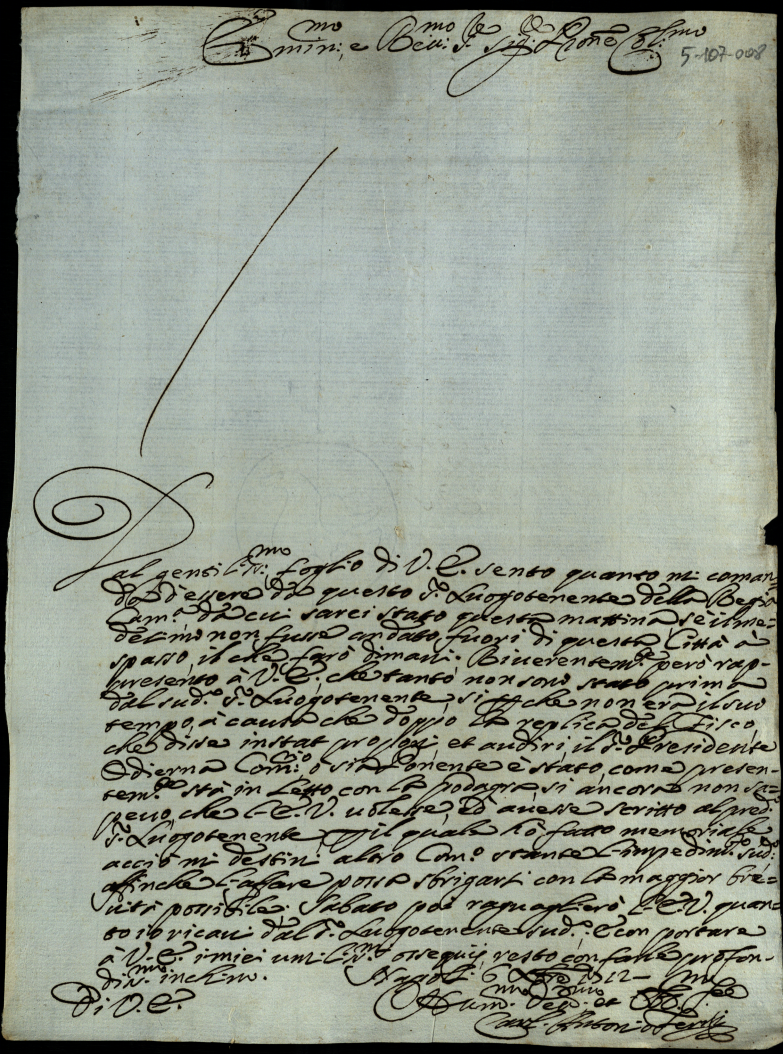 Emin:mo e Rev:mo Sre Sig:re Prone Col:mo
5-107-008
Dal gentiliss:mo foglio di V.E. sento quanto mi coman=
da d'essere da questo Sr. Luogotenente della Regia
Cam.a da cui sarei stato questa mattina se il me=
desimo non fusse andato fuori di questa Città à
spasso, il che farò dimani. Riverentem.e però rap=
presento à V.E. che tanto non sono stato prima
dal sud.o Sr. Luogotenente, si che non era il suo
tempo, à causa che doppò la replica del Fisco
che disse instat et audiri, il Sr. Presidente
Odierna Com.o ò sia Ponente è stato, come presen-
tem.e stà in letto con la podagra, si ancora non sa-
pevo, che l'E.V. volesse, ed avesse scritto al pred.o
Sr. Luogotenente al quale hò fatto memoriale
acciò mi destini altro Com.o stante l'impedim.to sud.o
affinche l'affare possa sbrigarsi con la maggior bre=
vità possibile. Sabato poi raguaglierò l'E.V. quan=
to io ricavi dal Sr. Luogotenente sud.o E con portare
à V.E. i miei umiliss.mi ossequij, resto con farle profon-
diss.mo inchino. Napoli 6
Di V.E.
Hum.mo Dev.mo et